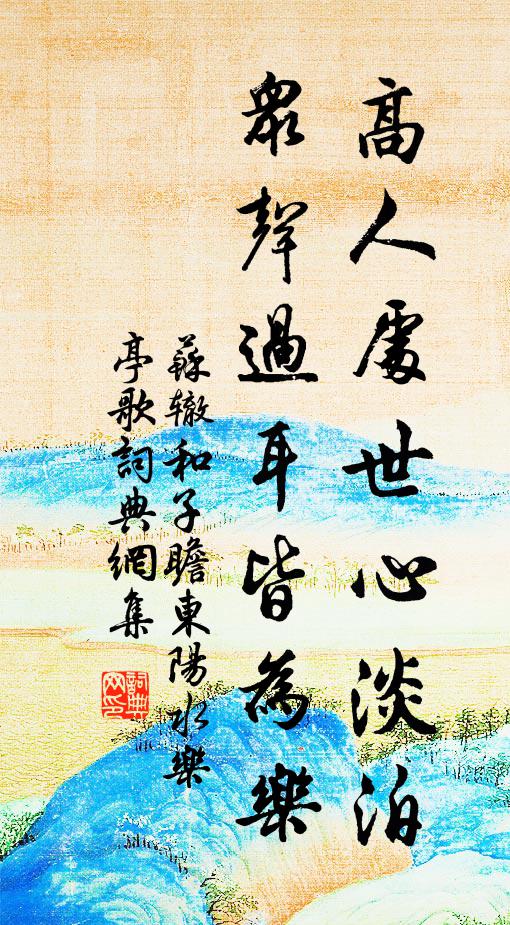 高人處世心淡泊
眾聲過耳皆為樂
蘇轍和子瞻東陽水樂
亭歌詞典網集
詞典網印